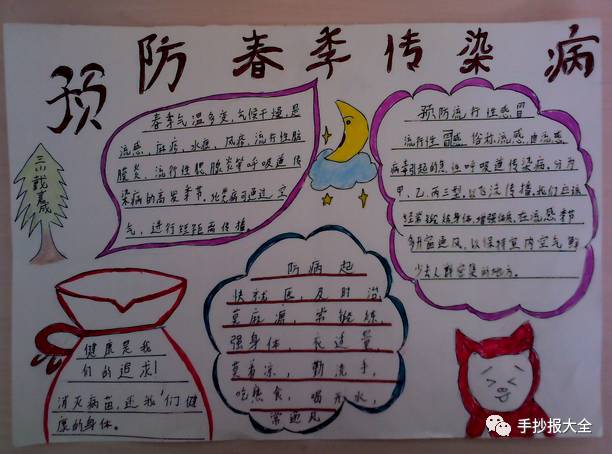 预防春季传染病
春季气温多变，气候干燥，是
流感，麻疹，水痘，风疹，流行性脑
膜炎，流行性腮腺炎等呼吸道传
染病的高发季节，此类病可通过空
气，进行短距离传播。
预防流行性感冒
流行性冒感俗称流感，由流感
病毒引起的急性呼吸道传染病，分为
甲、乙、丙三型，以飞沫传播，我们应该
经常锻炼身体，增强体质，在流感季节
多开窗通风，以保持室内空气新
少去人群密集的地方。
三
戴青晟
防病起
快就医，及时治
莫麻，常锻炼
强身体，衣适量
莫着凉，勤洗手，
吃熟食，喝开水，
常通风
健康是我
们的追求！
消灭病苗，还我们健
康的身体。
手抄报大全